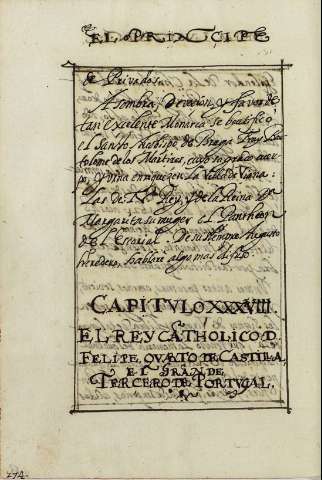 EL PRINCIPE
de Privados.
A sombra, devoción, y favor de
tan excelente Monarca se beatificò
el Santo Arzobispo de Braga Fray Bar
tolome de los Martires, cuyo sagrado cuer
po, y Vrna enriqueçen la Villa de Viana:
Las de N. Rey, y de la Reina Dª
Margarita su muger el Pantheon
del Escorial. De su siempre Augusto
heredero, hablarè algo mas difuso.
CAPITVLO XXXXVIII.
EL REY CATHOLICO D.
FELIPE QVARTO DE CASTILLA,
EL GRANDE,
TERCERO DE PORTVGAL.
274.